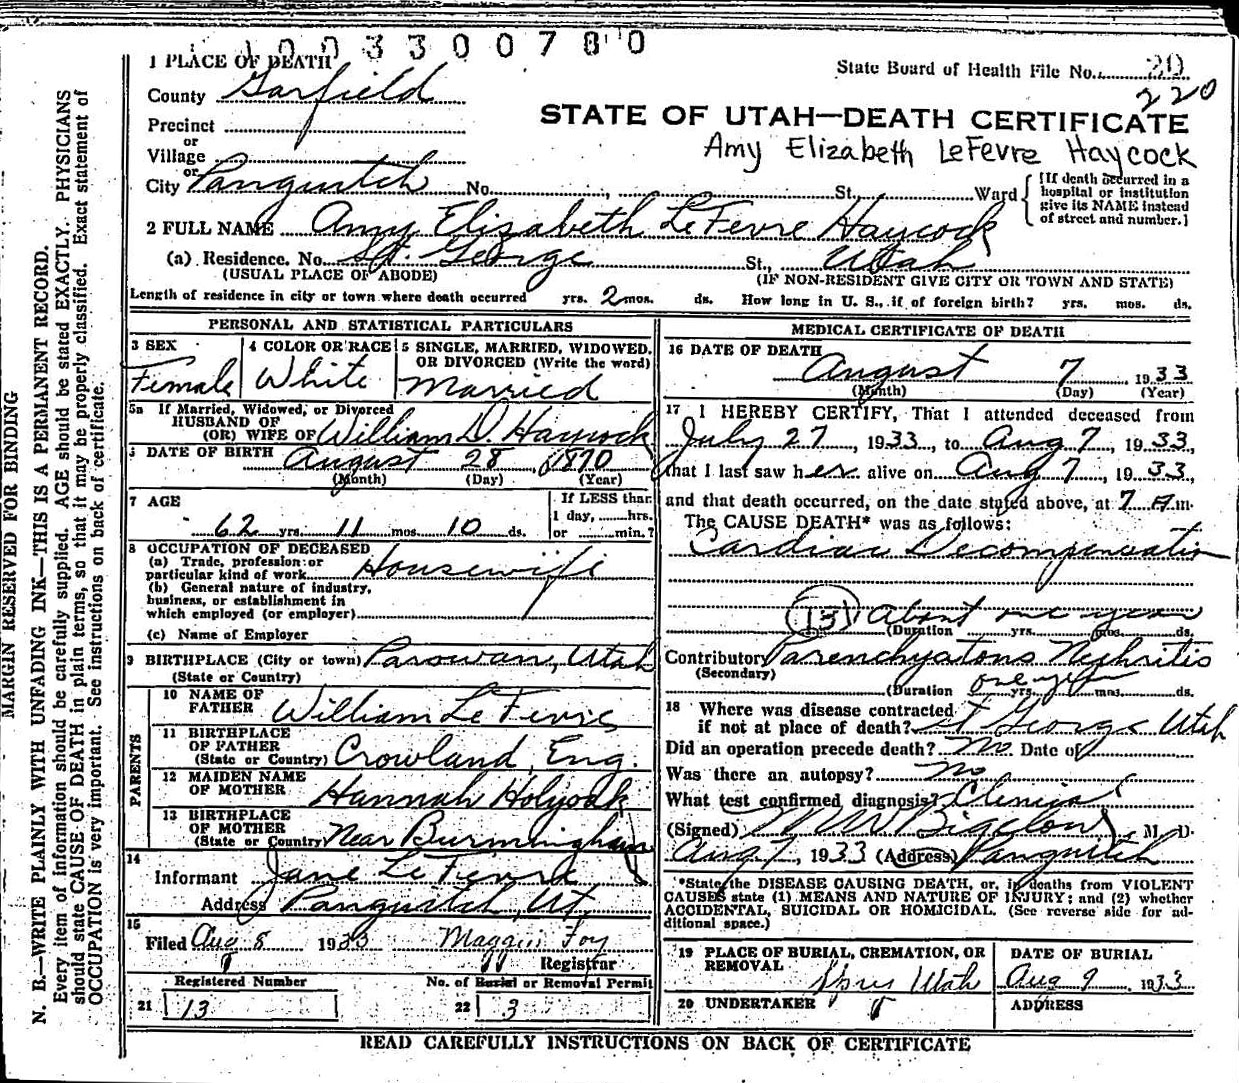 1003300780
1 PLACE OF DEATH
State Board of Health File No. 20
220
County Garfield
STATE OF UTAH—DEATH CERTIFICATE
Precinct
or
Amy Elizabeth LeFevre Haycock
Village
or
City Panguitch No. , St. Ward
[If death occurred in a hospital or institution give its NAME instead of street and number.]
2 FULL NAME Amy Elizabeth LeFevre Haycock
(a) Residence. No. St. George St., Utah
(USUAL PLACE OF ABODE) (IF NON-RESIDENT GIVE CITY OR TOWN AND STATE)
Length of residence in city or town where death occurred yrs. 2 mos. ds. How long in U. S., if of foreign birth? yrs. mos. ds.
PERSONAL AND STATISTICAL PARTICULARS
3 SEX
Female
4 COLOR OR RACE
White
5 SINGLE, MARRIED, WIDOWED,
OR DIVORCED (Write the word)
Married
5a If Married, Widowed, or Divorced
HUSBAND OF
(OR) WIFE OF William D. Haycock
DATE OF BIRTH August 28 1870
(Month) (Day) (Year)
7 AGE
62 yrs. 11 mos. 10 ds.
If LESS than
1 day, hrs.
or min.?
8 OCCUPATION OF DECEASED
(a) Trade, profession or
particular kind of work Housewife
(b) General nature of industry,
business, or establishment in
which employed (or employer)
(c) Name of Employer
9 BIRTHPLACE (City or town) Parowan, Utah
(State or Country)
PARENTS
10 NAME OF
FATHER William LeFevre
11 BIRTHPLACE
OF FATHER
(State or Country) Crowland, Eng.
12 MAIDEN NAME
OF MOTHER Hannah Holyoak
13 BIRTHPLACE
OF MOTHER
(State or Country) Near Burmingham
14
Informant Jane LeFevre
Address Panguitch, Ut.
15
Filed Aug 8 1933 Maggie Foy
Registrar
Registered Number
21 13
No. of Burial or Removal Permit
22 3
MEDICAL CERTIFICATE OF DEATH
16 DATE OF DEATH
August 7 1933
(Month) (Day) (Year)
17 I HEREBY CERTIFY, That I attended deceased from
July 27, 1933, to Aug 7, 1933,
that I last saw her alive on Aug 7, 1933,
and that death occurred, on the date stated above, at 7 A m.
The CAUSE DEATH* was as follows:
Cardiac Decompensation
13 About one year
(Duration yrs. mos. ds.
Contributory Parenchyatous Nephritis
(Secondary)
(Duration one year yrs. mos. ds.
18 Where was disease contracted
if not at place of death? St George Utah
Did an operation precede death? No. Date of
Was there an autopsy? no
What test confirmed diagnosis? Clinical
(Signed) Bigelow, M. D.
Aug 7, 1933 (Address) Panguitch
*State the DISEASE CAUSING DEATH, or, in deaths from VIOLENT
CAUSES state (1) MEANS AND NATURE OF INJURY; and (2) whether
ACCIDENTAL, SUICIDAL OR HOMICIDAL. (See reverse side for ad-
ditional space.)
19 PLACE OF BURIAL, CREMATION, OR
REMOVAL Utah
DATE OF BURIAL
Aug 9 1933
20 UNDERTAKER
ADDRESS
READ CAREFULLY INSTRUCTIONS ON BACK OF CERTIFICATE
MARGIN RESERVED FOR BINDING
N. B.—WRITE PLAINLY WITH UNFADING INK—THIS IS A PERMANENT RECORD.
Every item of information should be carefully supplied. AGE should be stated EXACTLY. PHYSICIANS
should state CAUSE OF DEATH in plain terms, so that it may be properly classified. Exact statement of
OCCUPATION is very important. See instructions on back of certificate.